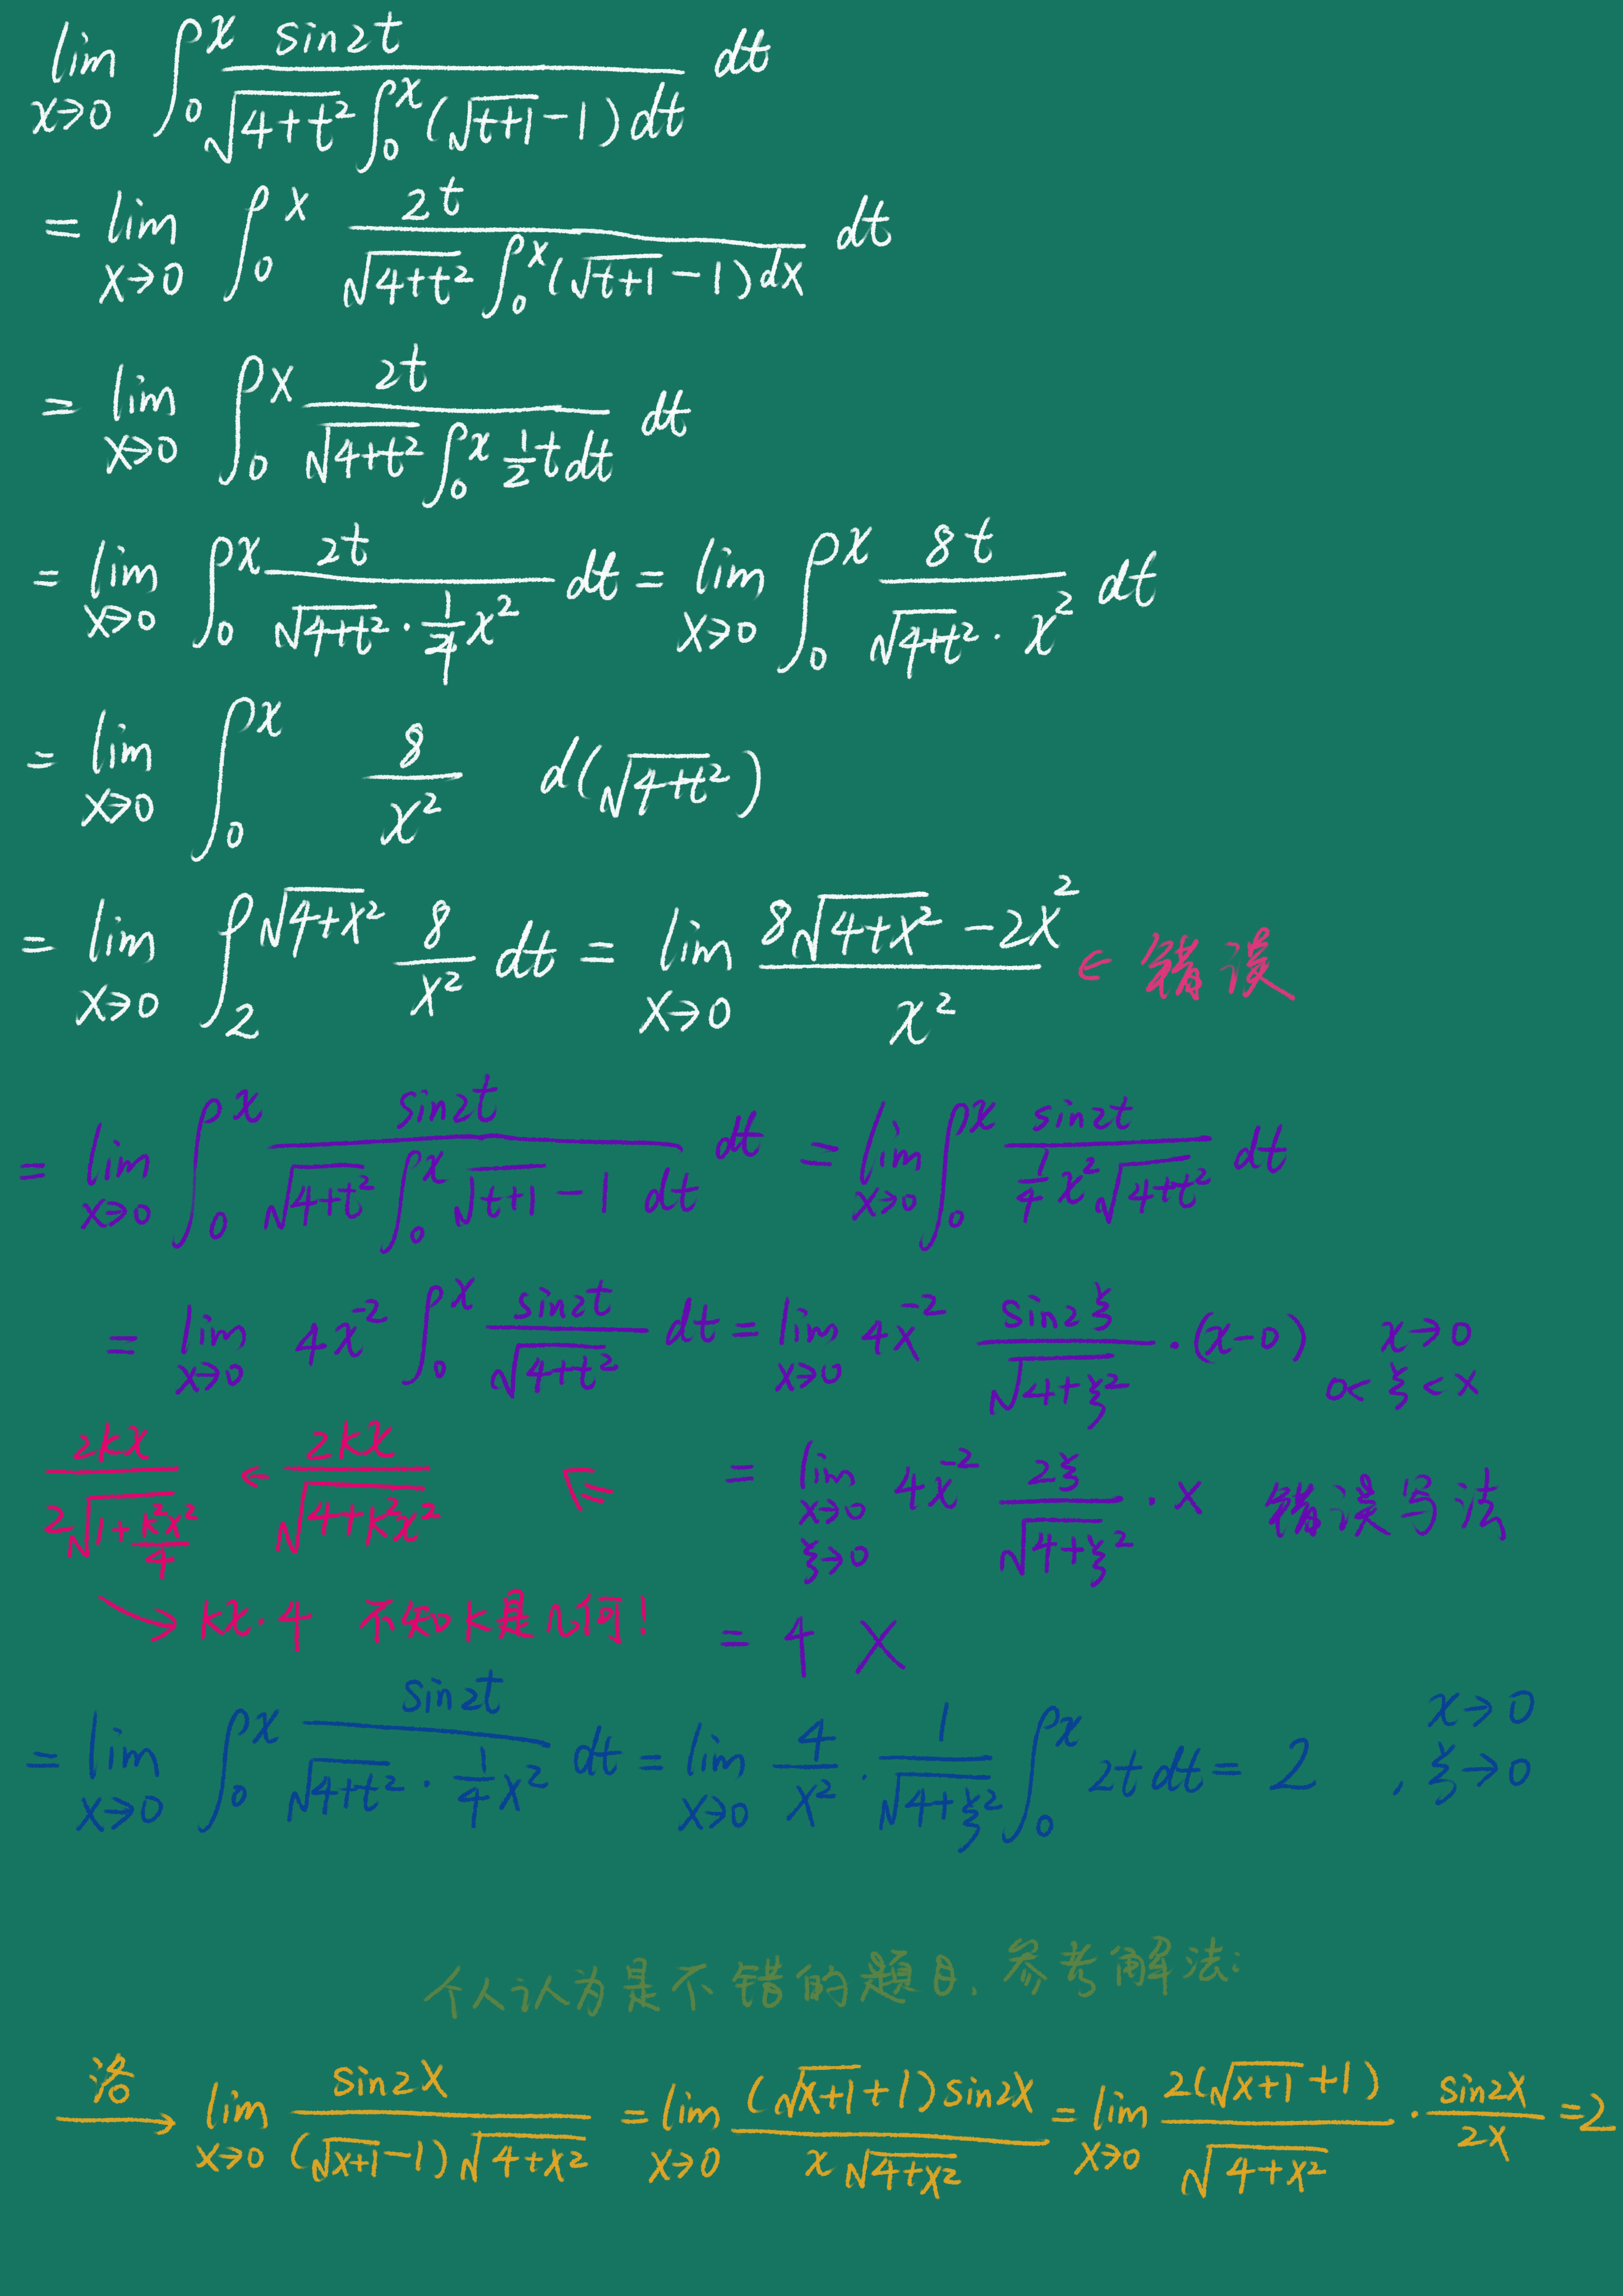 lim x→0 ∫₀ˣ sin2t / (√(4+t²) ∫₀ˣ (√(t+1) -1) dt) dt
= lim x→0 ∫₀ˣ 2t / (√(4+t²) ∫₀ˣ (√(t+1) -1) dx) dt
= lim x→0 ∫₀ˣ 2t / (√(4+t²) ∫₀ˣ ½t dt) dt
= lim x→0 ∫₀ˣ 2t / (√(4+t²) · ¼x²) dt = lim x→0 ∫₀ˣ 8t / (√(4+t²) · x²) dt
= lim x→0 ∫₀ˣ 8/x² d(√(4+t²))
= lim x→0 ∫₂^√(4+x²) 8/x² dt = lim x→0 (8√(4+x²) - 2x²) / x² ← 错误
= lim x→0 ∫₀ˣ sin2t / (√(4+t²) ∫₀ˣ √(t+1) -1 dt) dt = lim x→0 ∫₀ˣ sin2t / (¼x²√(4+t²)) dt
= lim x→0 4x⁻² ∫₀ˣ sin2t / √(4+t²) dt = lim x→0 4x⁻² sin2ξ / √(4+ξ²) · (x-0) x→0 0<ξ<x
2kx / (2√(1+k²x²/4)) ← 2kx / √(4+k²x²) ⇐ = lim x→0 ξ→0 4x⁻² 2ξ / √(4+ξ²) · x 错误写法
↘ kx·4 不知k是几何! = 4 X
= lim x→0 ∫₀ˣ sin2t / (√(4+t²) · ¼x²) dt = lim x→0 4/x² · 1/√(4+ξ²) ∫₀ˣ 2t dt = 2 , x→0 ξ→0
个人认为是不错的题目.参考解法:
洛→ lim x→0 sin2x / ((√(x+1) -1)√(4+x²)) = lim x→0 (√(x+1) +1)sin2x / (x√(4+x²)) = lim x→0 2(√(x+1) +1) / √(4+x²) · sin2x / 2x = 2